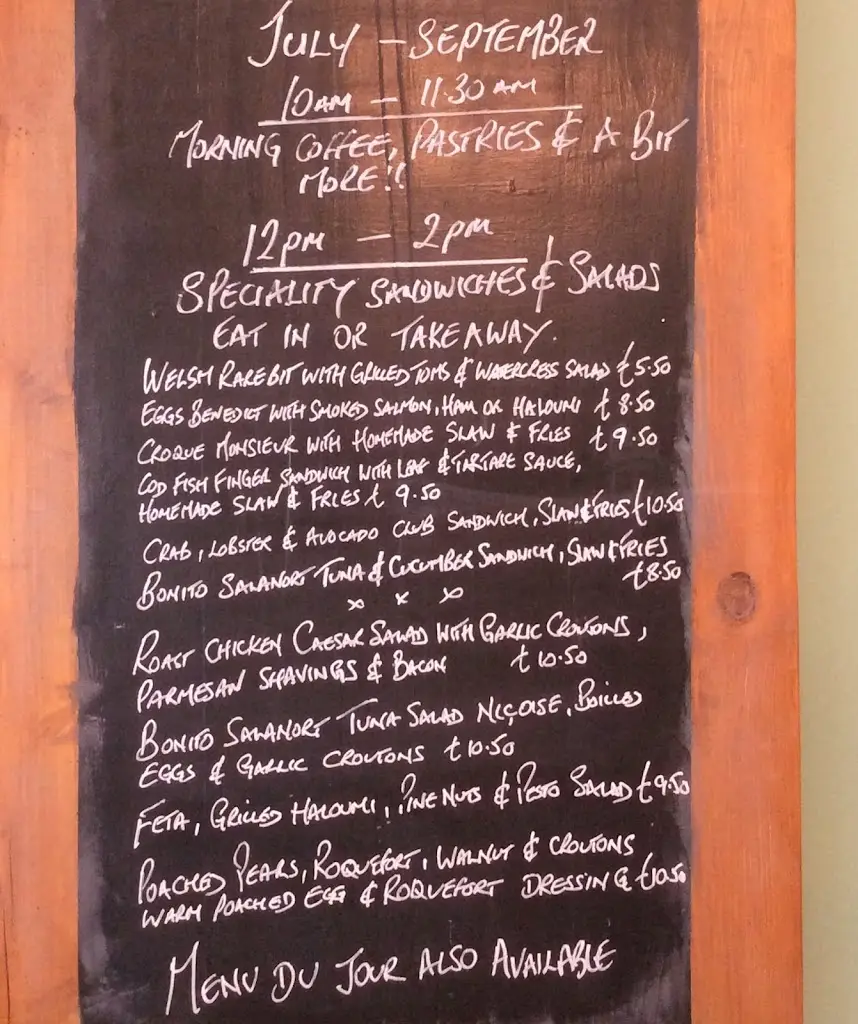 JULY - SEPTEMBER
10AM - 11.30AM
MORNING COFFEE, PASTRIES & A BIT
MORE!!
12PM - 2PM
SPECIALITY SANDWICHES & SALADS
EAT IN OR TAKEAWAY.
WELSH RAREBIT WITH GRILLED TOMS & WATERCRESS SALAD £5.50
EGGS BENEDICT WITH SMOKED SALMON, HAM OR HALOUMI £8.50
CROQUE MONSIEUR WITH HOMEMADE SLAW & FRIES £9.50
COD FISH FINGER SANDWICH WITH LEAF & TARTARE SAUCE,
HOMEMADE SLAW & FRIES £9.50
CRAB, LOBSTER & AVOCADO CLUB SANDWICH, SLAW & FRIES £10.50
BONITO SALANORT TUNA & CUCUMBER SANDWICH, SLAW & FRIES
£8.50
x x x
ROAST CHICKEN CAESAR SALAD WITH GARLIC CROUTONS,
PARMESAN SHAVINGS & BACON £10.50
BONITO SALANORT TUNA SALAD NIÇOISE, BOILED
EGGS & GARLIC CROUTONS £10.50
FETA, GRILLED HALOUMI, PINE NUTS & PESTO SALAD £9.50
POACHED PEARS, ROQUEFORT, WALNUT & CROUTONS
WARM POACHED EGG & ROQUEFORT DRESSING £10.50
MENU DU JOUR ALSO AVAILABLE